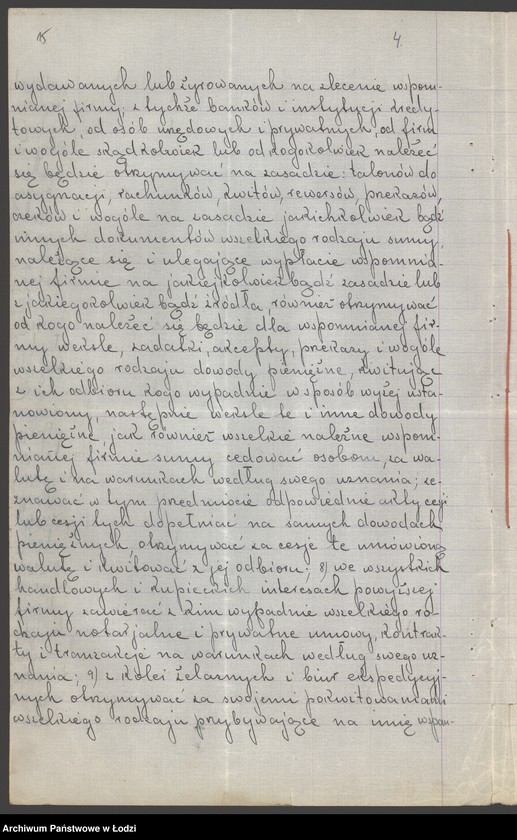 15 4.
wydawanych lub żyrowanych na zlecenie wspom-
nianej firmy, z tychże banków i instytucji kredy-
towych, od osób urzędowych i prywatnych, od firm
i wogóle skądkolwiek lub od kogokolwiek należeć
się będzie otrzymywać na zasadzie: talonów do
asygnacji, rachunków, kwitów, rewersów, przekazów,
czeków i wogóle na zasadzie jakichkolwiek bądź
innych dokumentów wszelkiego rodzaju sumy,
należące się i ulegające wypłacie wspomnia-
nej firmie na jakiejkolwiekbądź zasadzie lub
z jakiegokolwiek bądź źródła, również otrzymywać
od kogo należeć się będzie dla wspomnianej fir-
my weksle, zadatki, akcepty, przekazy i wogóle
wszelkiego rodzaju dowody pieniężne, kwitując
z ich odbioru kogo wypadnie w sposób wyżej usta-
nowiony, następnie weksle te i inne dowody
pieniężne, jak również wszelkie należne wspom-
nianej firmie sumy cedować osobom, za wa-
lutę i na warunkach według swego uznania; ze-
znawać w tym przedmiocie odpowiednie akty cesji
lub cesji tych dopełniać na samych dowodach
pieniężnych, otrzymywać za cesje te umówioną
walutę i kwitować z jej odbioru; 8) we wszystkich
handlowych i kupieckich interesach powyższej
firmy zawierać z kim wypadnie wszelkiego ro-
dzaju notarjalne i prywatne umowy, kontrak-
ty i tranzakcje na warunkach według swego uz-
nania; 9) z kolei żelaznych i biur ekspedycyj-
nych otrzymywać za swojemi pokwitowaniami
wszelkiego rodzaju przybywające na imię wspom-
Archiwum Państwowe w Łodzi